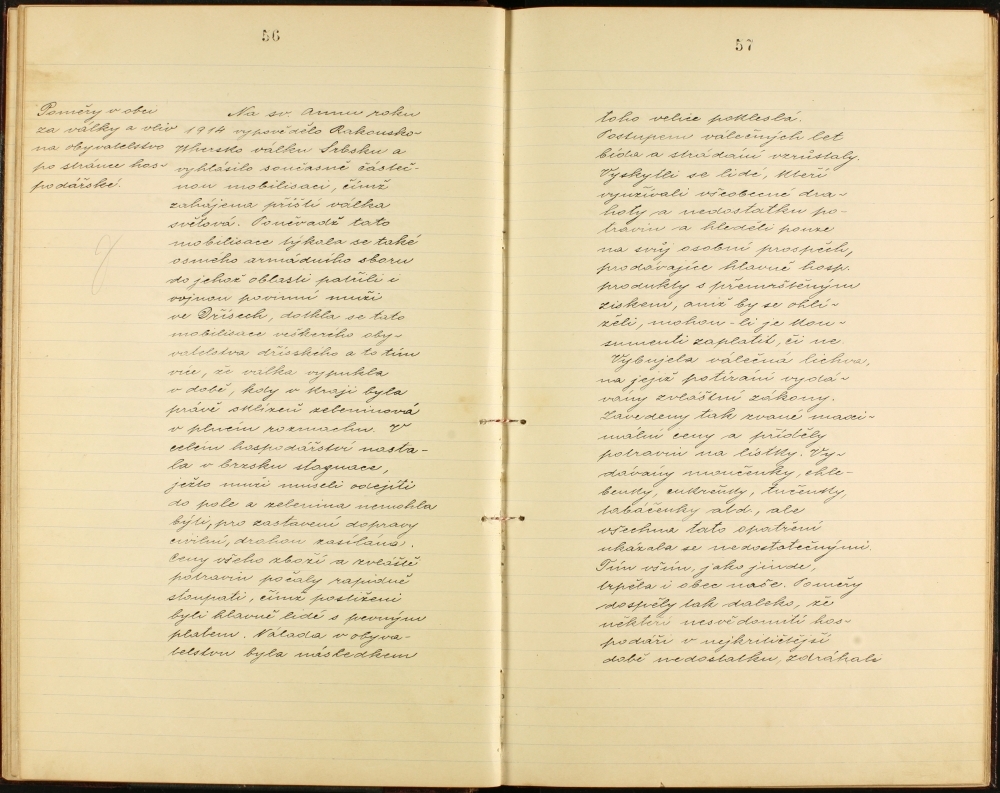 56
Poměry v obci
za války a vliv
na obyvatelstvo
po stránce hos-
podářské.
Na sv. Annu roku
1914 vypovědělo Rakousko-
Uhersko válku Srbsku a
vyhlásilo současně částeč-
nou mobilisaci, čímž
zahájena příští válka
světová. Poněvadž tato
mobilisace týkala se také
osmého armádního sboru
do jehož oblasti patřili i
vojnou povinní muži
ve Dřísech, dotkla se tato
mobilisace veškerého oby-
vatelstva dřísského a to tím
více, že válka vypukla
v době, kdy v kraji byla
právě sklizeň zeleninová
v plném rozmachu. V
celém hospodářství nasta-
la v brzsku stagnace,
ježto muži museli odejíti
do pole a zelenina nemohla
býti, pro zastavení dopravy
civilní, drahou zasílána.
Ceny všeho zboží a zvláště
potravin počaly rapidně
stoupati, čímž postiženi
byli hlavně lidé s pevným
platem. Nálada v obyva-
telstvu byla následkem
57
toho velice pokleslá.
Postupem válečných let
bída a strádání vzrůstaly.
Vyskytli se lidé, kteří
využívali všeobecné dra-
hoty a nedostatku po-
travin a hleděli pouze
na svůj osobní prospěch,
prodávajíce hlavně hosp.
produkty s přemrštěným
ziskem, aniž by se ohlí-
želi, mohou-li je kon-
sumenti zaplatit, či ne.
Vybujela válečná lichva,
na jejíž potírání vydá-
vány zvláštní zákony.
Zavedeny tak zvané maxi-
mální ceny a příděly
potravin na lístky. Vy-
dávány moučenky, chle-
benky, cukřenky, tučenky,
tabačenky atd., ale
všechna tato opatření
ukázala se nedostatečnými.
Tím vším, jako jinde,
trpěla i obec naše. Poměry
dospěly tak daleko, že
někteří nesvědomití hos-
podáři v nejkritičtější
době nedostatku, zdráhali